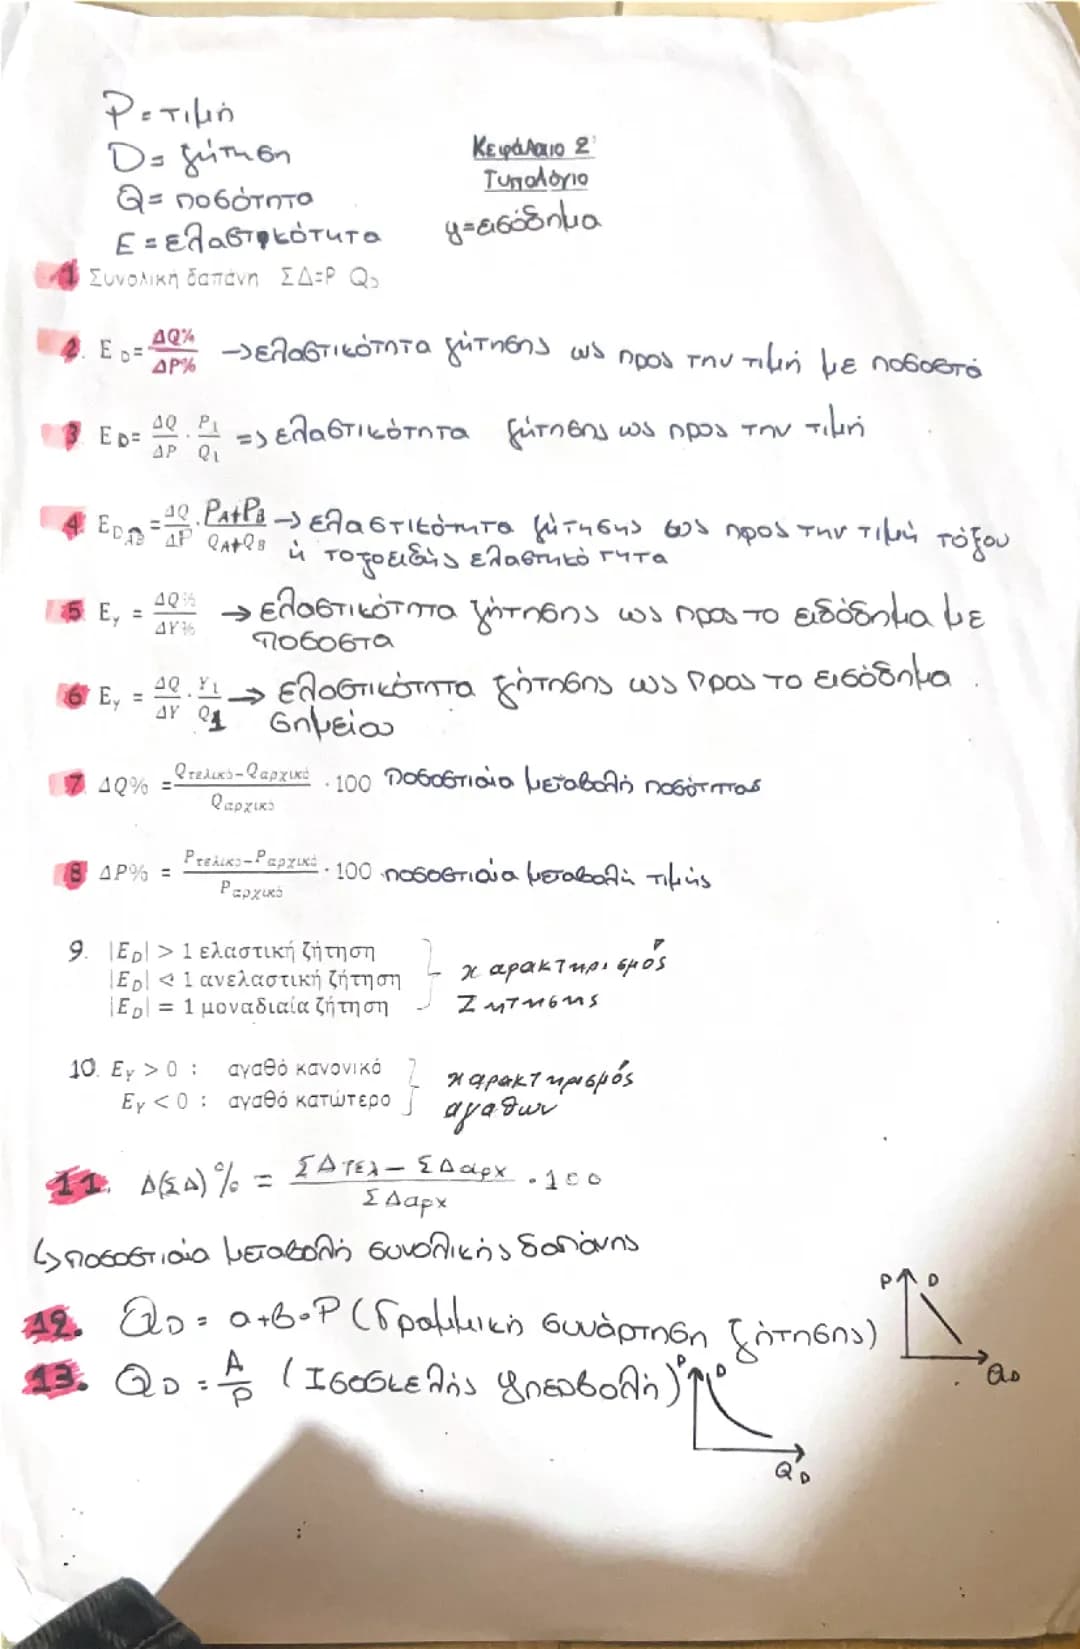 P = τιμή
D = ζήτηση
Q = ποσότητα
E = ελαστικότητα
Κεφάλαιο 2
Τυπολόγιο
y = εισόδημα
1. Συνολική δαπάνη ΣΔ=P Q_D
2. E_D = ΔQ% / ΔP% → ελαστικότητα ζήτησης ως προς την τιμή με ποσοστό
3 E_D = ΔQ/ΔP · P₁/Q₁ => ελαστικότητα ζήτησης ως προς την τιμή
4. E_D AB = ΔQ/ΔP · PA+PB / QA+QB → ελαστικότητα ζήτησης ως προς την τιμή τόξου
ή τοξοειδής ελαστικότητα
5 E_y = ΔQ% / ΔY% → ελαστικότητα ζήτησης ως προς το εισόδημα με
ποσοστα
6 E_y = ΔQ/ΔY · Y₁/Q1 → ελαστικότητα ζήτησης ως προς το εισόδημα
σημείου
7. ΔQ% = Qτελικό−Qαρχικό / Qαρχικό · 100 ποσοστιαία μεταβολή ποσότητας
8 ΔP% = Pτελικό−Pαρχικό / Pαρχικό · 100 ποσοστιαία μεταβολή τιμής
9. |E_D| > 1 ελαστική ζήτηση
|E_D| < 1 ανελαστική ζήτηση
|E_D| = 1 μοναδιαία ζήτηση
χαρακτηρισμός
Ζήτησης
10. E_Y > 0 : αγαθό κανονικό
E_Y < 0 : αγαθό κατώτερο
χαρακτηρισμός
αγαθων
11. Δ(ΣΔ)% = ΣΔτελ − ΣΔαρχ / ΣΔαρχ · 100
↳ ποσοστιαία μεταβολή συνολικής δαπάνης
12. Q_D = α+β·P (Γραμμική συνάρτηση ζήτησης)
P D
Q_D
13. Q_D = A/P (Ισοσκελής υπερβολή)
P D
Q_D